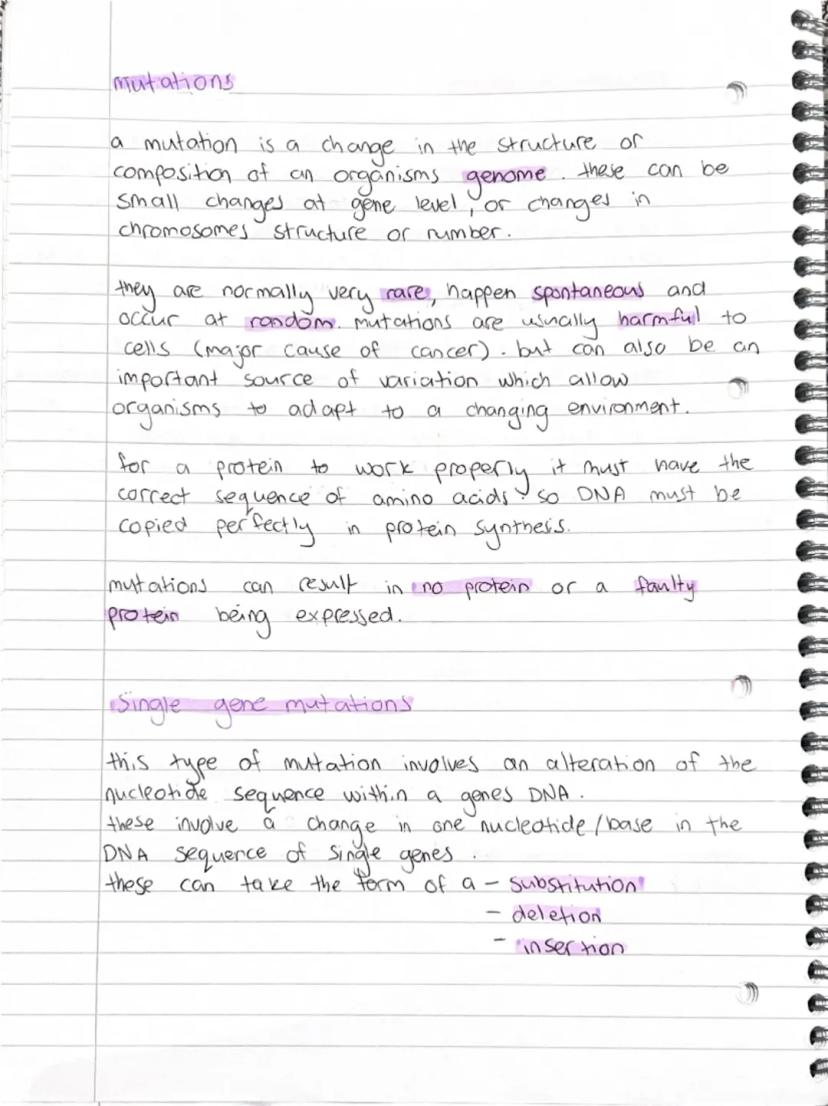 mutations
a mutation is a change in the structure or
composition of an organisms genome. these can be
small changes at gene level, or changes in
chromosomes structure or number.
they are normally very rare, happen spontaneous and
occur at random. mutations are usually harmful to
cells (major cause of cancer). but can also be an
important source of variation which allow
organisms to adapt to a changing environment.
for a protein to work properly it must have the
correct sequence of amino acids. so DNA must be
copied perfectly in protein synthesis.
mutations can result in no protein or a faulty
protein being expressed.
single gene mutations
this type of mutation involves an alteration of the
nucleotide sequence within a genes DNA.
these involve a change in one nucleotide/base in the
DNA sequence of single genes.
these can take the form of a - substitution
- deletion
- insertion